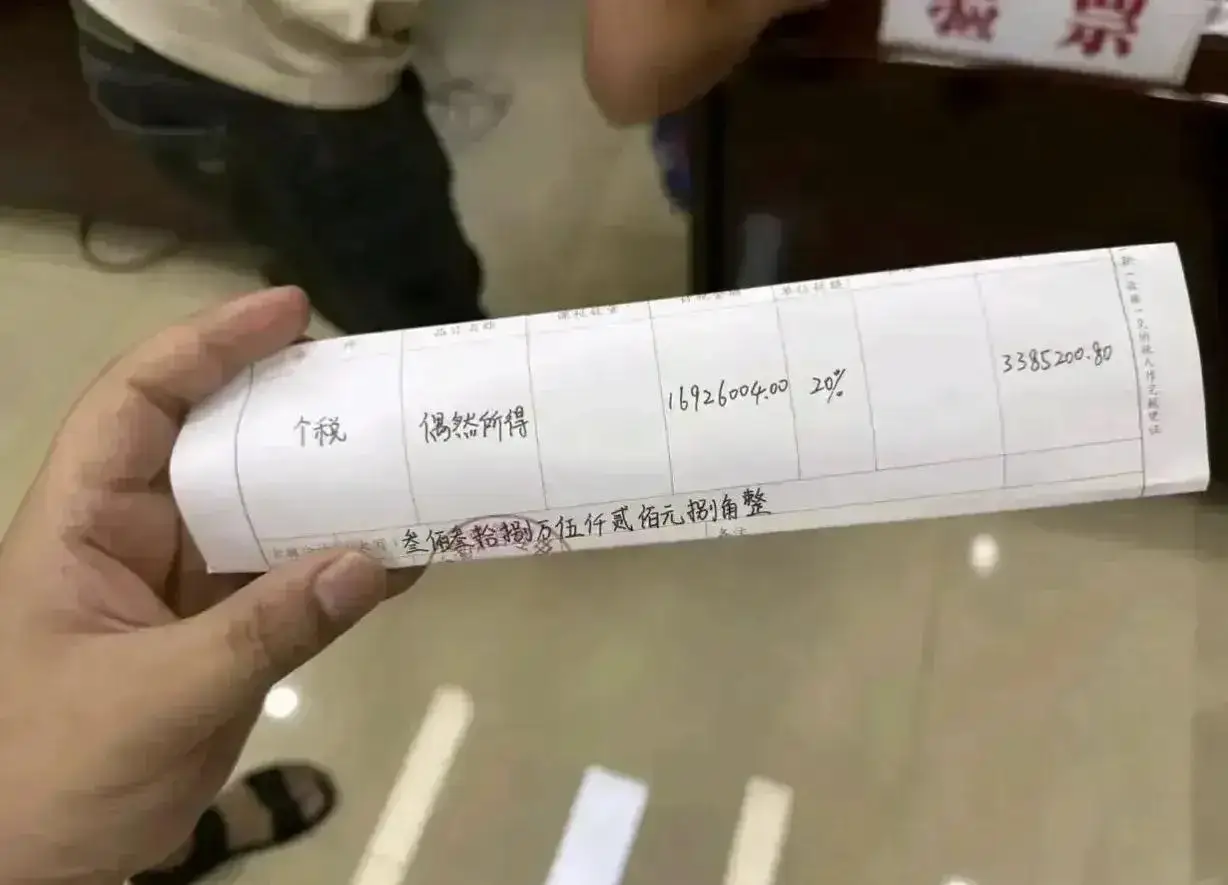 票
品目名称
计税金额
单位税额
个税
偶然所得
16926004.00
20%
3385200.80
叁佰叁拾捌万伍仟贰佰元捌角整
备注